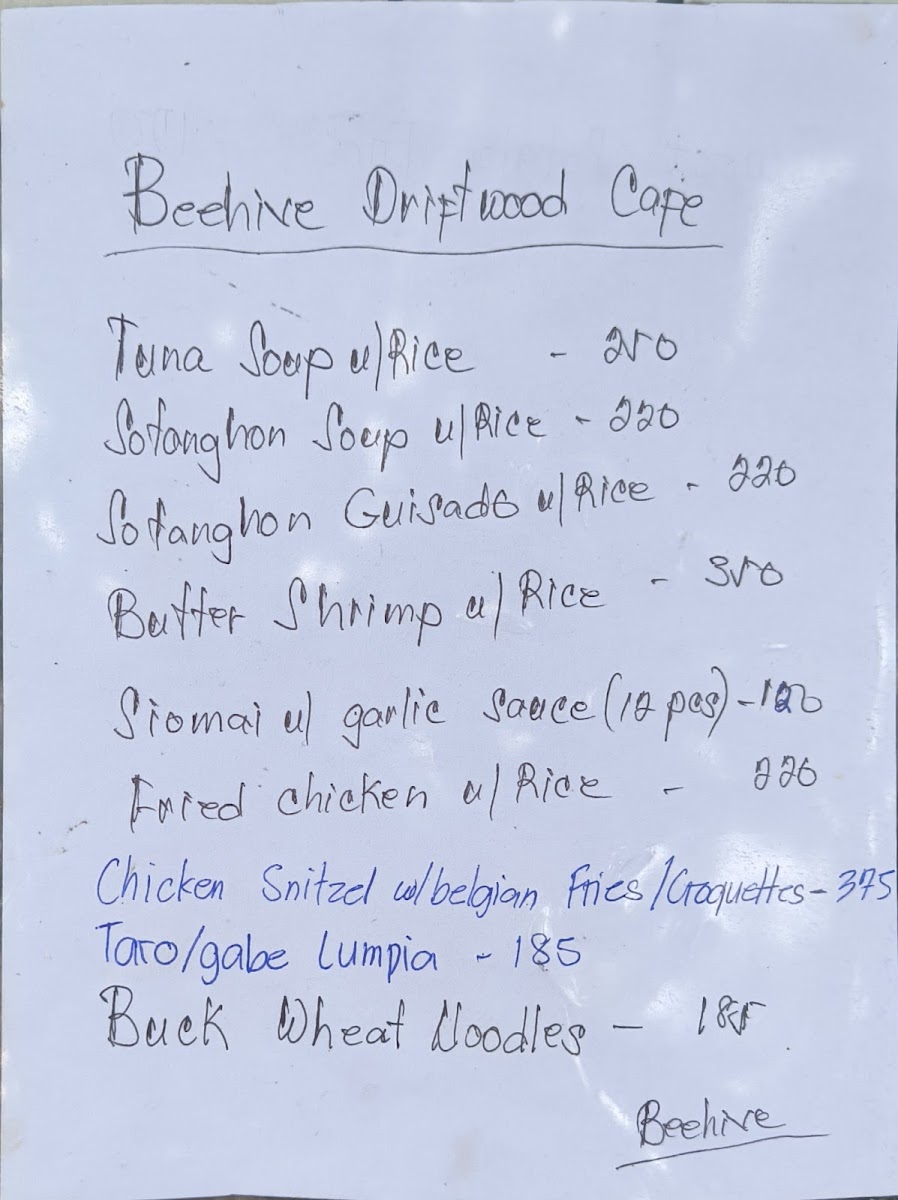 Beehive Driftwood Cafe
Tuna Soup w/Rice - 250
Sotanghon Soup w/Rice - 220
Sotanghon Guisado w/Rice - 220
Butter Shrimp w/Rice - 350
Siomai w/ garlic sauce (12 pcs) - 120
Fried chicken w/Rice - 220
Chicken Snitzel w/belgian Fries/Croquettes - 375
Taro/gabe Lumpia - 185
Buck Wheat Noodles - 185
Beehive